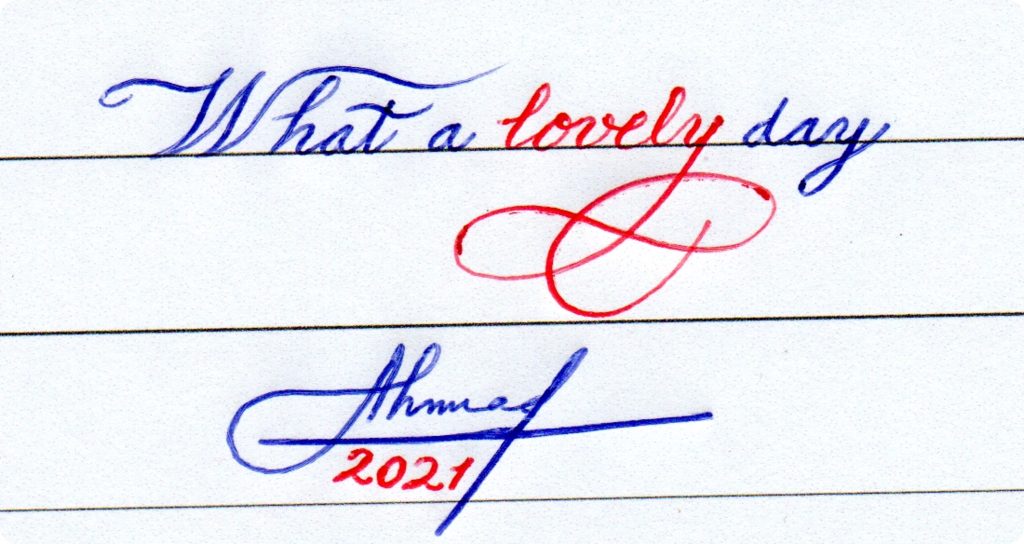 What a lovely day
Ahmad
2021